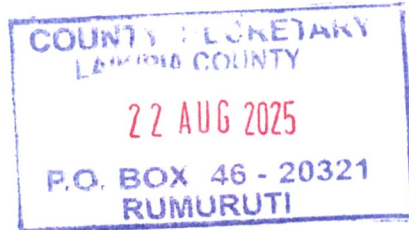 COUNTY SECRETARY
LAIKIPIA COUNTY
22 AUG 2025
P.O. BOX 46 - 20321
RUMURUTI